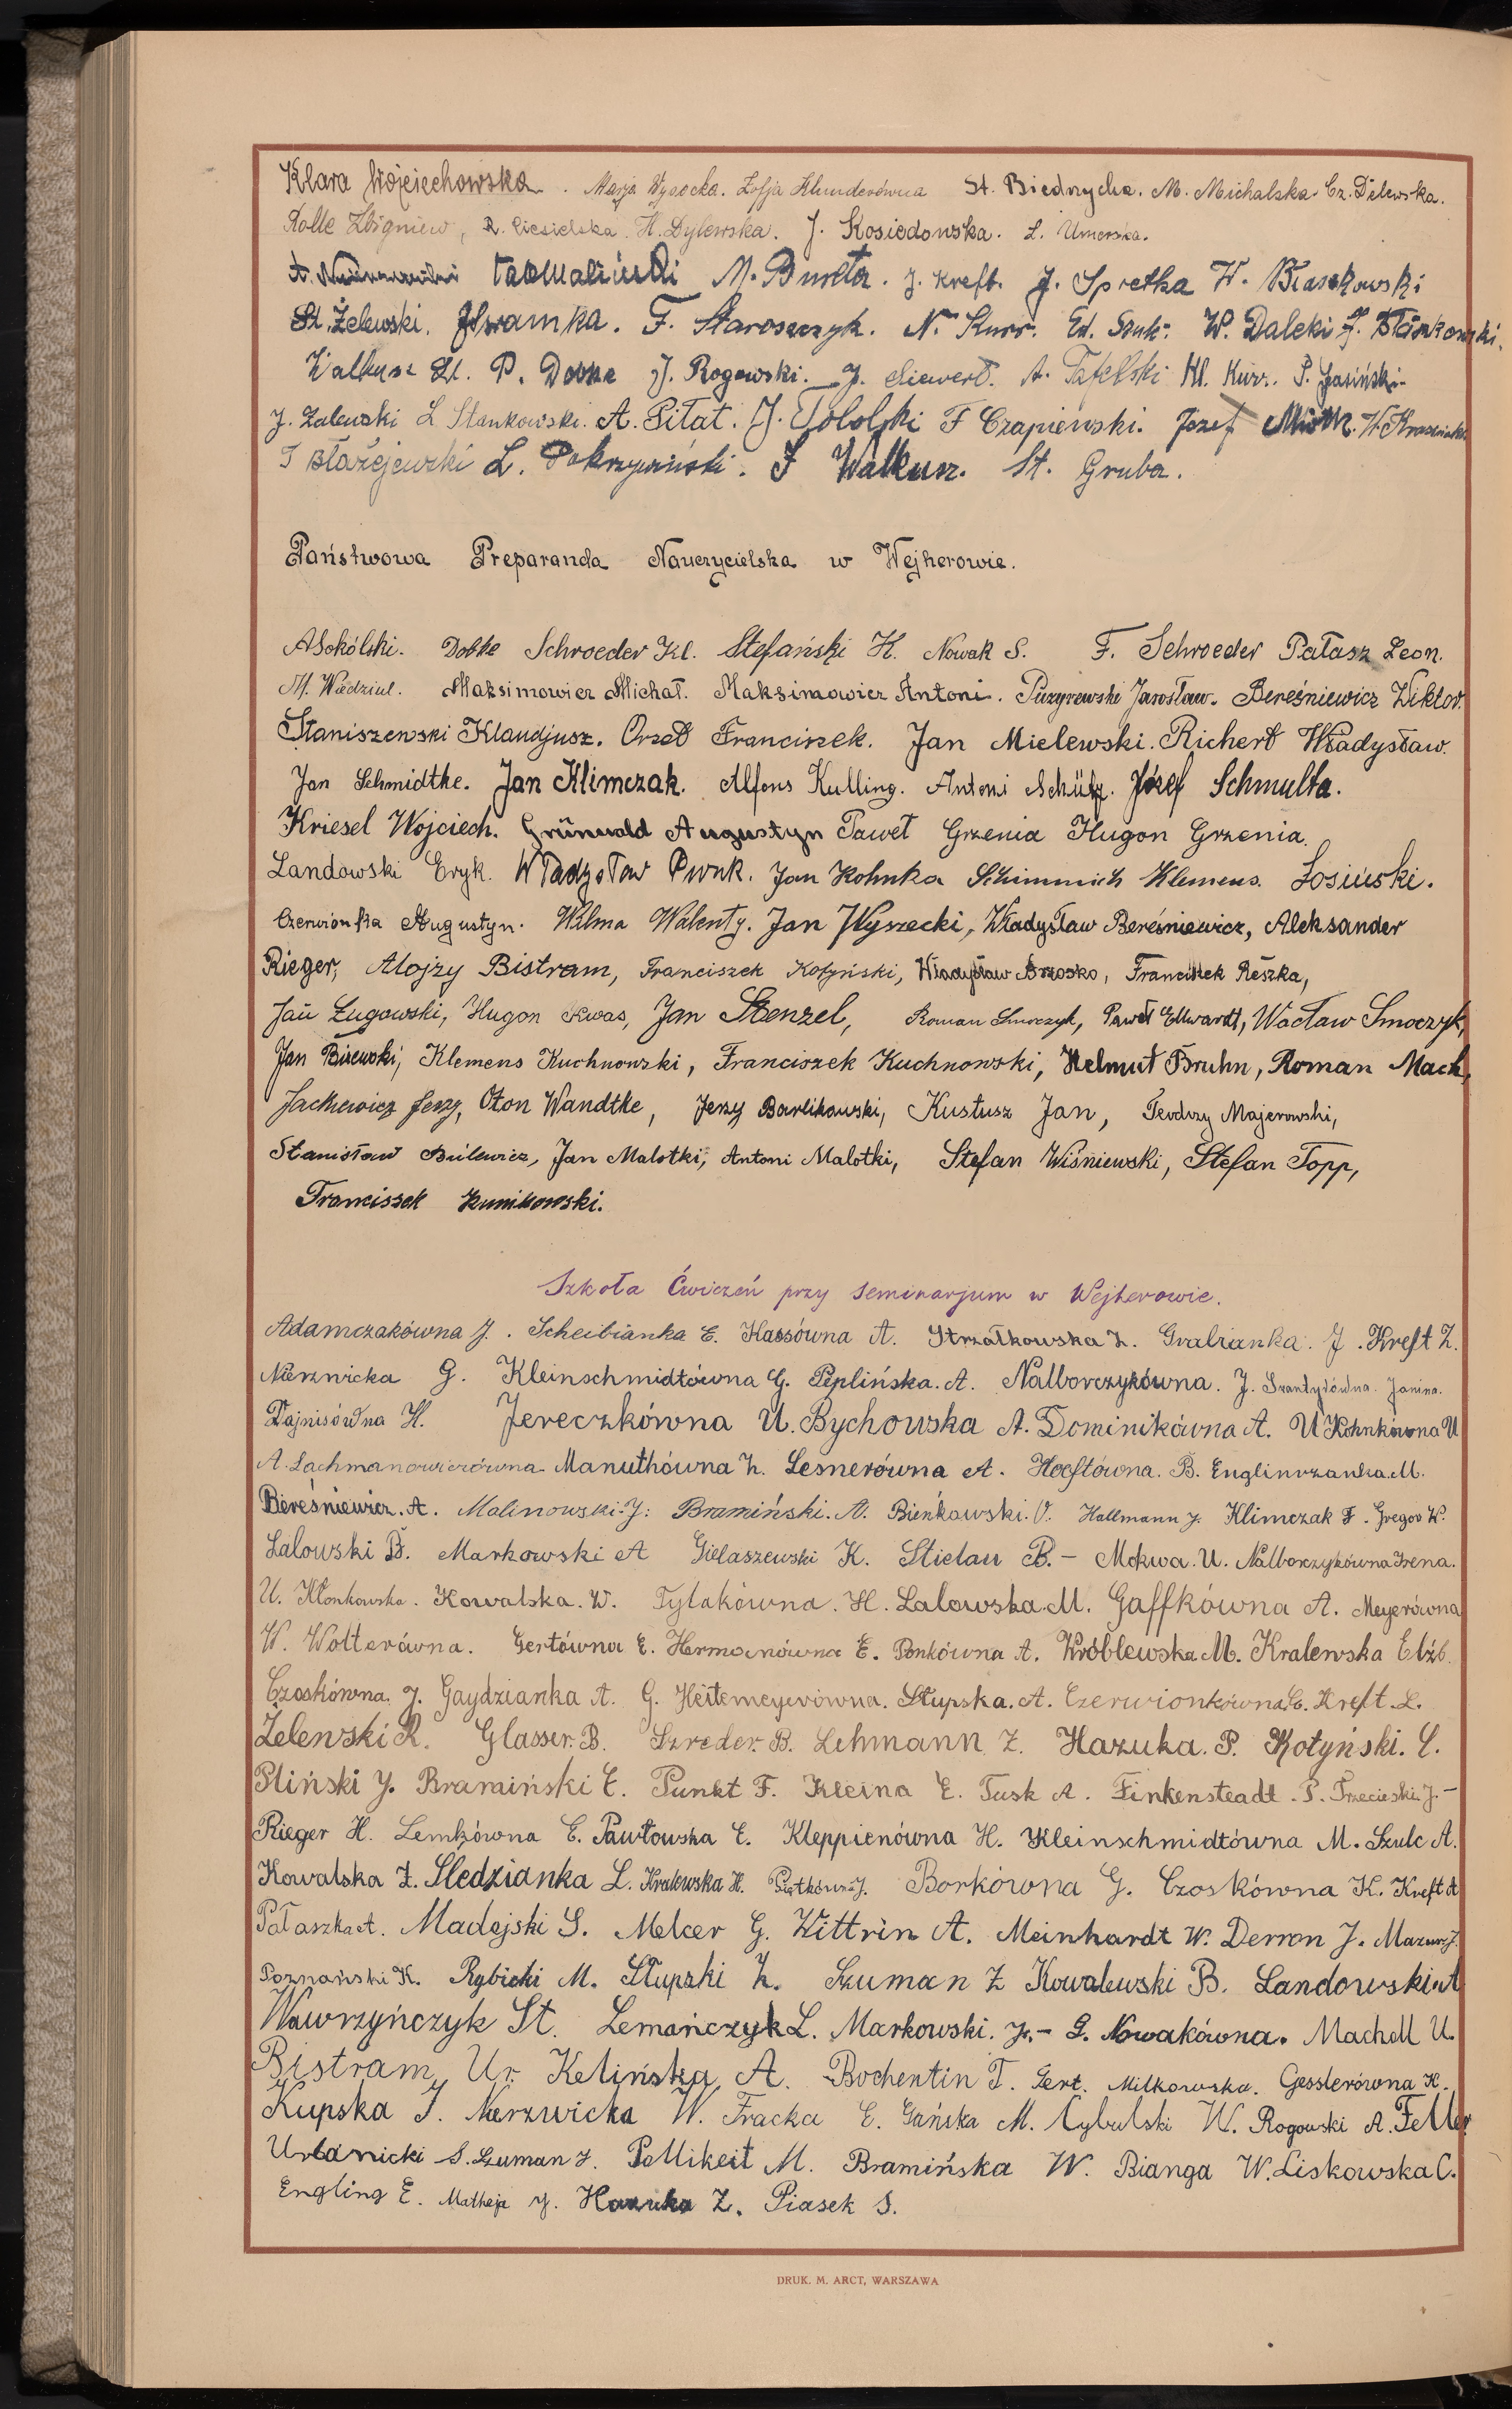 Klara Wojciechowska. Marja Wysocka. Zofja Klunderówna St. Biednycha. M. Michalska. Cz. Delewska.
Rolle Zbigniew, R. Ciesielska. H. Dylewska. J. Kosiedowska. L. Umerska.
A. M. Bunda. J. Kreft. J. Spretka W. Błaszkowski
St. Żelewski. F. Staroszczyk. N. Kurr. Ed. Szuk. W. Dalecki
Walkusz St. P. Dobke J. Rogowski. J. Siewert. A. Tafelski Kl. Kurr. P. Jasiński.
J. Zalewski L. Stankowski. A. Piłat. J. Tololski F Czapiewski. Józef Miotk. W.
T Błażejewski L. Pokrzywiński. J Walkusz. St. Gruba.
Państwowa Preparanda Nauczycielska w Wejherowie.
ASokólski. Dobke Schroeder Kl. Stefański H. Nowak S. F. Schroeder Pałasz Leon.
M. Wiedziul. Maksimowicz Michał. Maksimowicz Antoni. Puzyrewski Jarosław. Bereśniewicz Wiktor.
Staniszewski Klaudjusz. Orzeł Franciszek. Jan Mielewski. Richert Władysław.
Jan Schmidtke. Jan Klimczak. Alfons Kulling. Antoni Schütz. Józef Schmulta.
Kriesel Wojciech. Grünwald Augustyn Paweł Grzenia Hugon Grzenia.
Landowski Eryk. Władysław Penk. Jan Kohnka Schimmich Klemens. Łosiński.
Czerwionka Augustyn. Wilma Walenty. Jan Wyszecki, Władysław Bereśniewicz, Aleksander
Rieger, Alojzy Bistram, Franciszek Kotyński, Władysław Brzosko, Franciszek Reszka,
Jan Ługowski, Hugon Kwas, Jan Stenzel, Roman Smoczyk, Paweł Ellwardt, Wacław Smoczyk,
Jan Bizewski, Klemens Kuchnowski, Franciszek Kuchnowski, Helmut Bruhn, Roman Mach,
Jackiewicz Jerzy, Oton Wandtke, Jerzy Barlikowski, Kustusz Jan, Teodozy Majerowski,
Stanisław Bulewicz, Jan Malotki, Antoni Malotki, Stefan Wiśniewski, Stefan Topp,
Franciszek Kunikowski.
Szkoła Ćwiczeń przy seminarjum w Wejherowie.
Adamczakówna J. Scheibianka E. Kassówna A. Strzałkowska Z. Grabianka. J. Kreft Z.
Nierzwicka G. Kleinschmidtówna G. Peplińska. A. Nalborczykówna. J. Szantyrówna. Janina.
Dajnisówna H. Jereczkówna U. Bychowska A. Dominikówna A. U Kohnkówna U
A. Lachmanowiczówna. Manuthówna Z. Lesnerówna A. Hoeftówna. B. Englinrzanka. M.
Bereśniewicz. A. Malinowski. J. Bramiński. A. Bieńkowski. O. Hallmann J. Klimczak F. Gregor W.
Lalowski B. Markowski A Gielaszewski K. Stielau B. - Mokwa. U. Nalborczykówna Irena.
U. Kłonkowska. Kowalska. W. Tylakówna. H. Lalowska. M. Gaffkówna A. Meyerówna
W. Wolterówna. Gertówna E. Hermanówna E. Ponkówna A. Wróblewska M. Kralewska Elżb.
Czoskówna. J. Gaydzianka A. G. Heitemeyerówna. Słupska. A. Czerwionkówna. C. Kreft. L.
Żelewski R. Glasser. B. Szreder. B. Lehmann Z. Hazuka. P. Kotyński. C.
Pliński J. Bramiński E. Punkt F. Kleina E. Tusk A. Finkensteadt. P. Trzecieski. J. -
Rieger H. Lemkówna E. Pawłowska E. Kleppienówna H. Kleinschmidtówna M. Szulc A.
Kowalska Z. Śledzianka L. Kralewska H. Piątkówna J. Borkówna G. Czoskówna K. Kreft A
Pałaszka A. Madejski S. Melcer G. Wittrin A. Meinhardt W. Derron J. Mazur J.
Poznański K. Rybicki M. Słupski Z. Szuman Z Kowalewski B. Landowski A
Wawrzyńczyk St. Lemańczyk L. Markowski. J. - G. Nowakówna. Machall U.
Bistram Ur. Kelińska A. Bochentin T. Gert. Milkowska. Gesslerówna H.
Kupska J. Nierzwicka W. Fracka E. Gańska M. Cybulski W. Rogowski A. Feller
Urbanicki S. Szuman J. Pellikeit M. Bramińska W. Bianga W. Liskowska C.
Engling E. Matheja J. Hazuka Z. Piasek S.
DRUK. M. ARCT, WARSZAWA